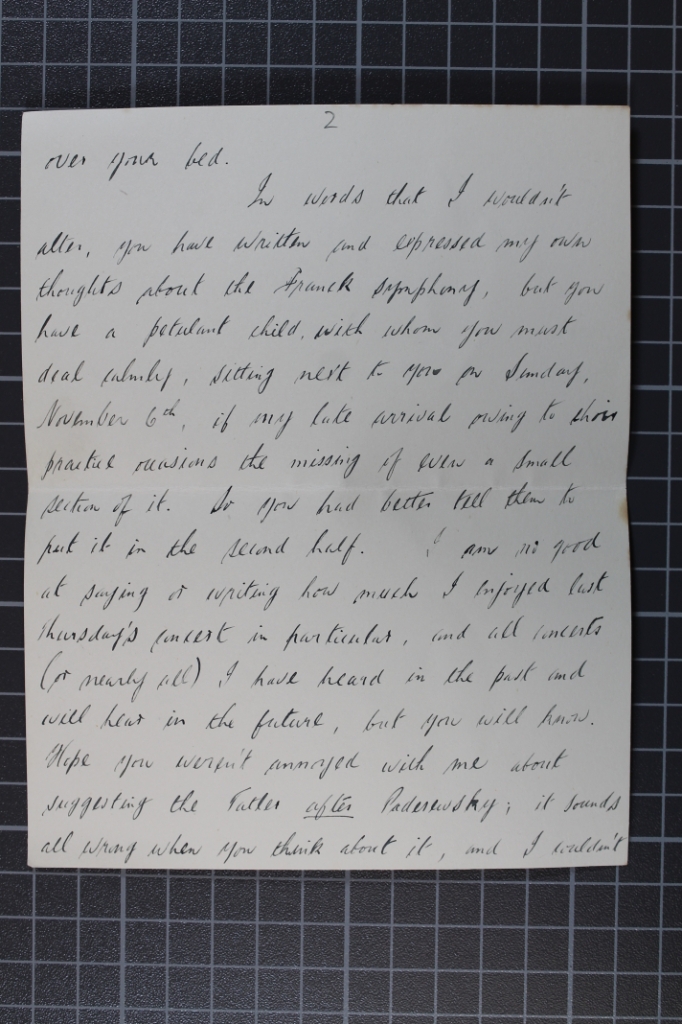 2
over your bed.
In words that I wouldn't
alter, you have written and expressed my own
thoughts about the Franck symphony, but you
have a petulant child, with whom you must
deal calmly, sitting next to you on Sunday,
November 6th, if my late arrival owing to choir
practice occasions the missing of even a small
section of it. So you had better tell them to
put it in the second half. I am no good
at saying or writing how much I enjoyed last
Thursday's concert in particular, and all concerts
(or nearly all) I have heard in the past and
will hear in the future, but you will know.
Hope you weren't annoyed with me about
suggesting the Tatler after Paderewsky; it sounds
all wrong when you think about it, and I wouldn't